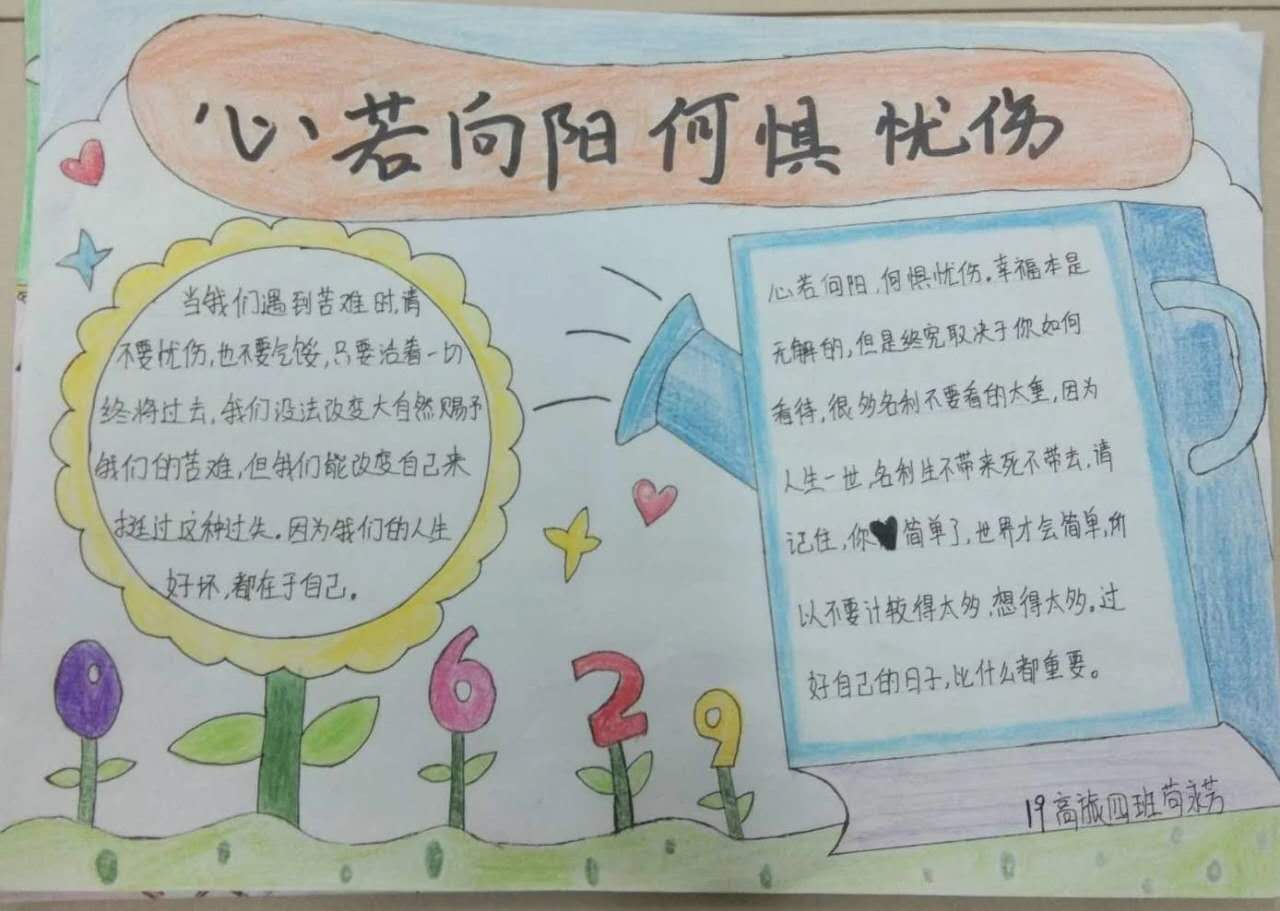 心若向阳何惧忧伤
当我们遇到苦难时,请
不要忧伤,也不要气馁,只要活着一切
终将过去,我们没法改变大自然赐予
我们的苦难,但我们能改变自己来
挺过这种过失。因为我们的人生
好坏,都在于自己。
心若向阳,何惧忧伤。幸福本是
无解的,但是终究取决于你如何
看待,很多名利不要看的太重,因为
人生一世,名利生不带来死不带去,请
记住,你简单了,世界才会简单,所
以不要计较得太多,想得太多。过
好自己的日子,比什么都重要。
0629
19高旅四班苟永芳